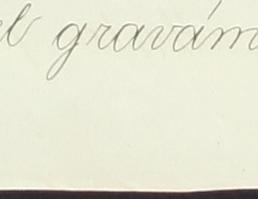 el gravám